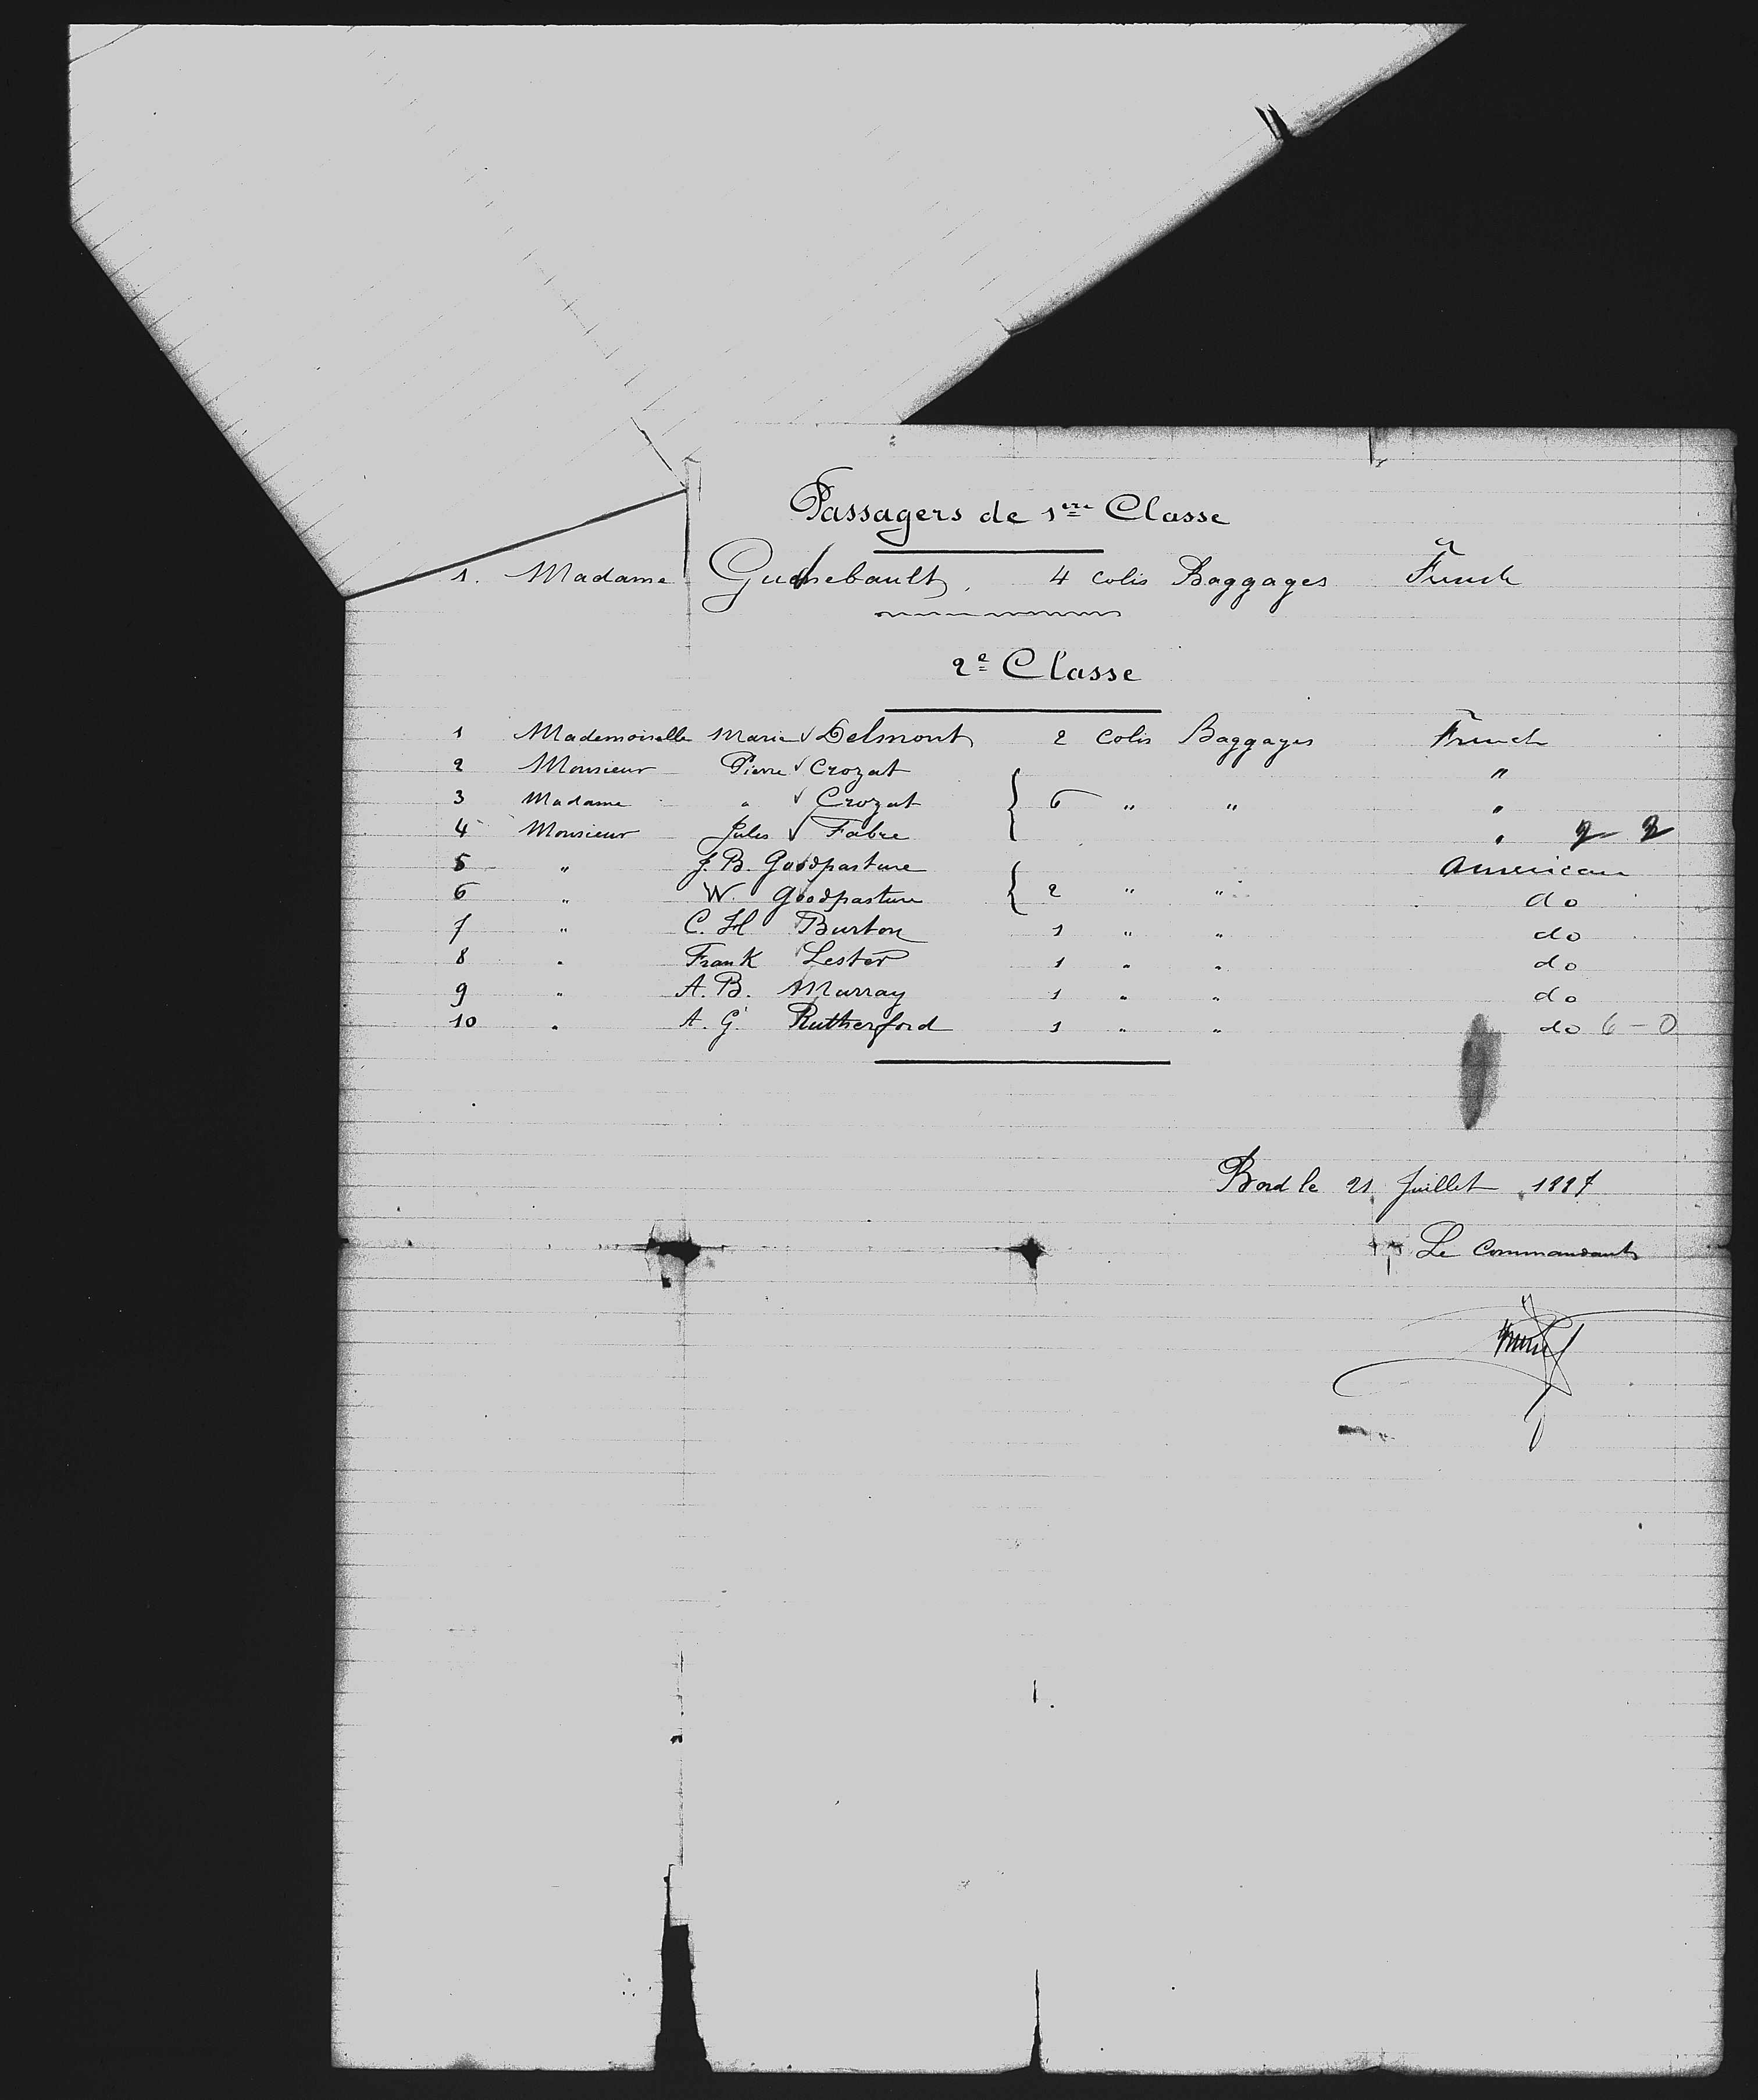 Passagers de 1ère Classe
1. Madame Guenebault, 4 Colis Baggages French
2e Classe
1 Mademoiselle Marie Delmont 2 Colis Baggages French
2 Monsieur Pierre Crozat "
3 Madame " Crozat { 6 " " "
4 Monsieur Jules Fabre " 2 - 2
5 " J. B. Goodpasture American
6 " W. Goodpasture { 2 " " do
7 " C. H Burton 1 " " do
8 " Frank Lester 1 " " do
9 " A. B. Murray 1 " " do
10 " A. G. Rutherford 1 " " do 6 - 0
Bord le 21 Juillet 1887
Le Commandant